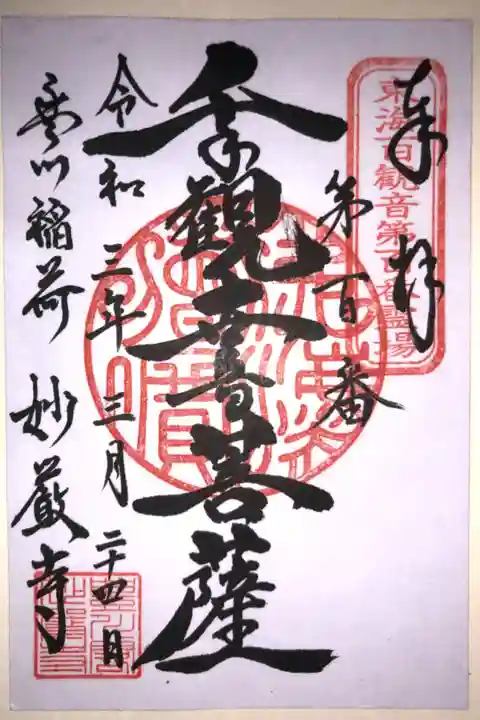 奉拝
東海百観音第百番霊場
第百番
千手観音菩薩
令和三年三月二十四日
豊川稲荷 妙厳寺